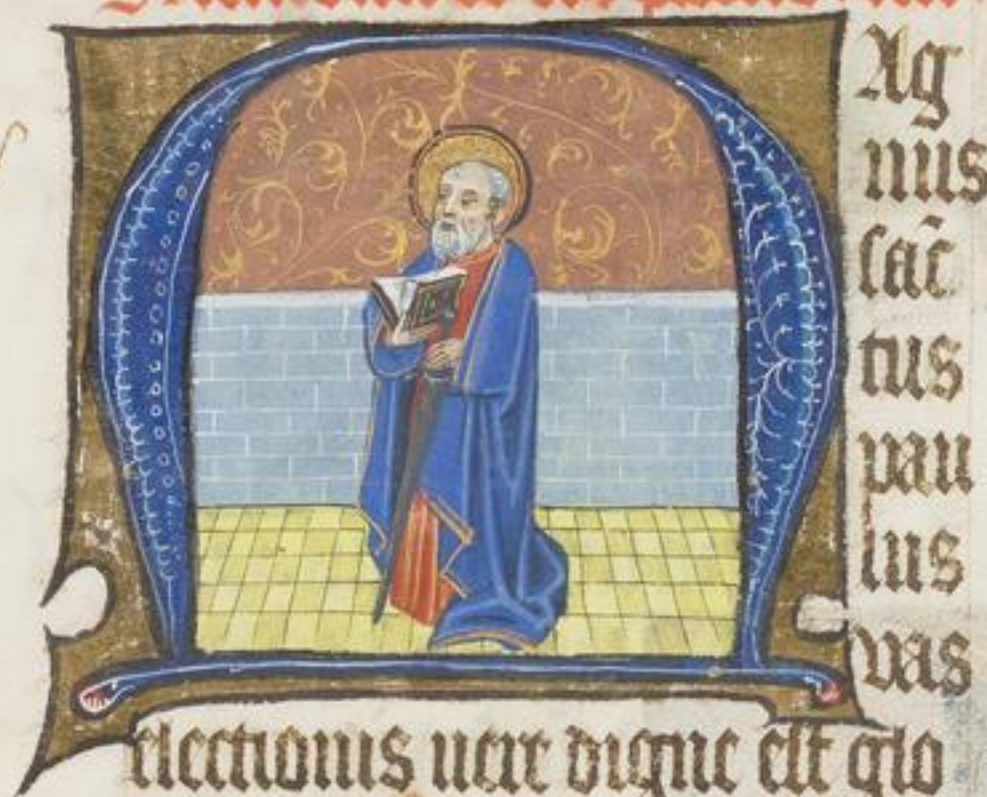 Ag
nus
sāc
tus
pau
lus
vas
electionis uere digne est glo